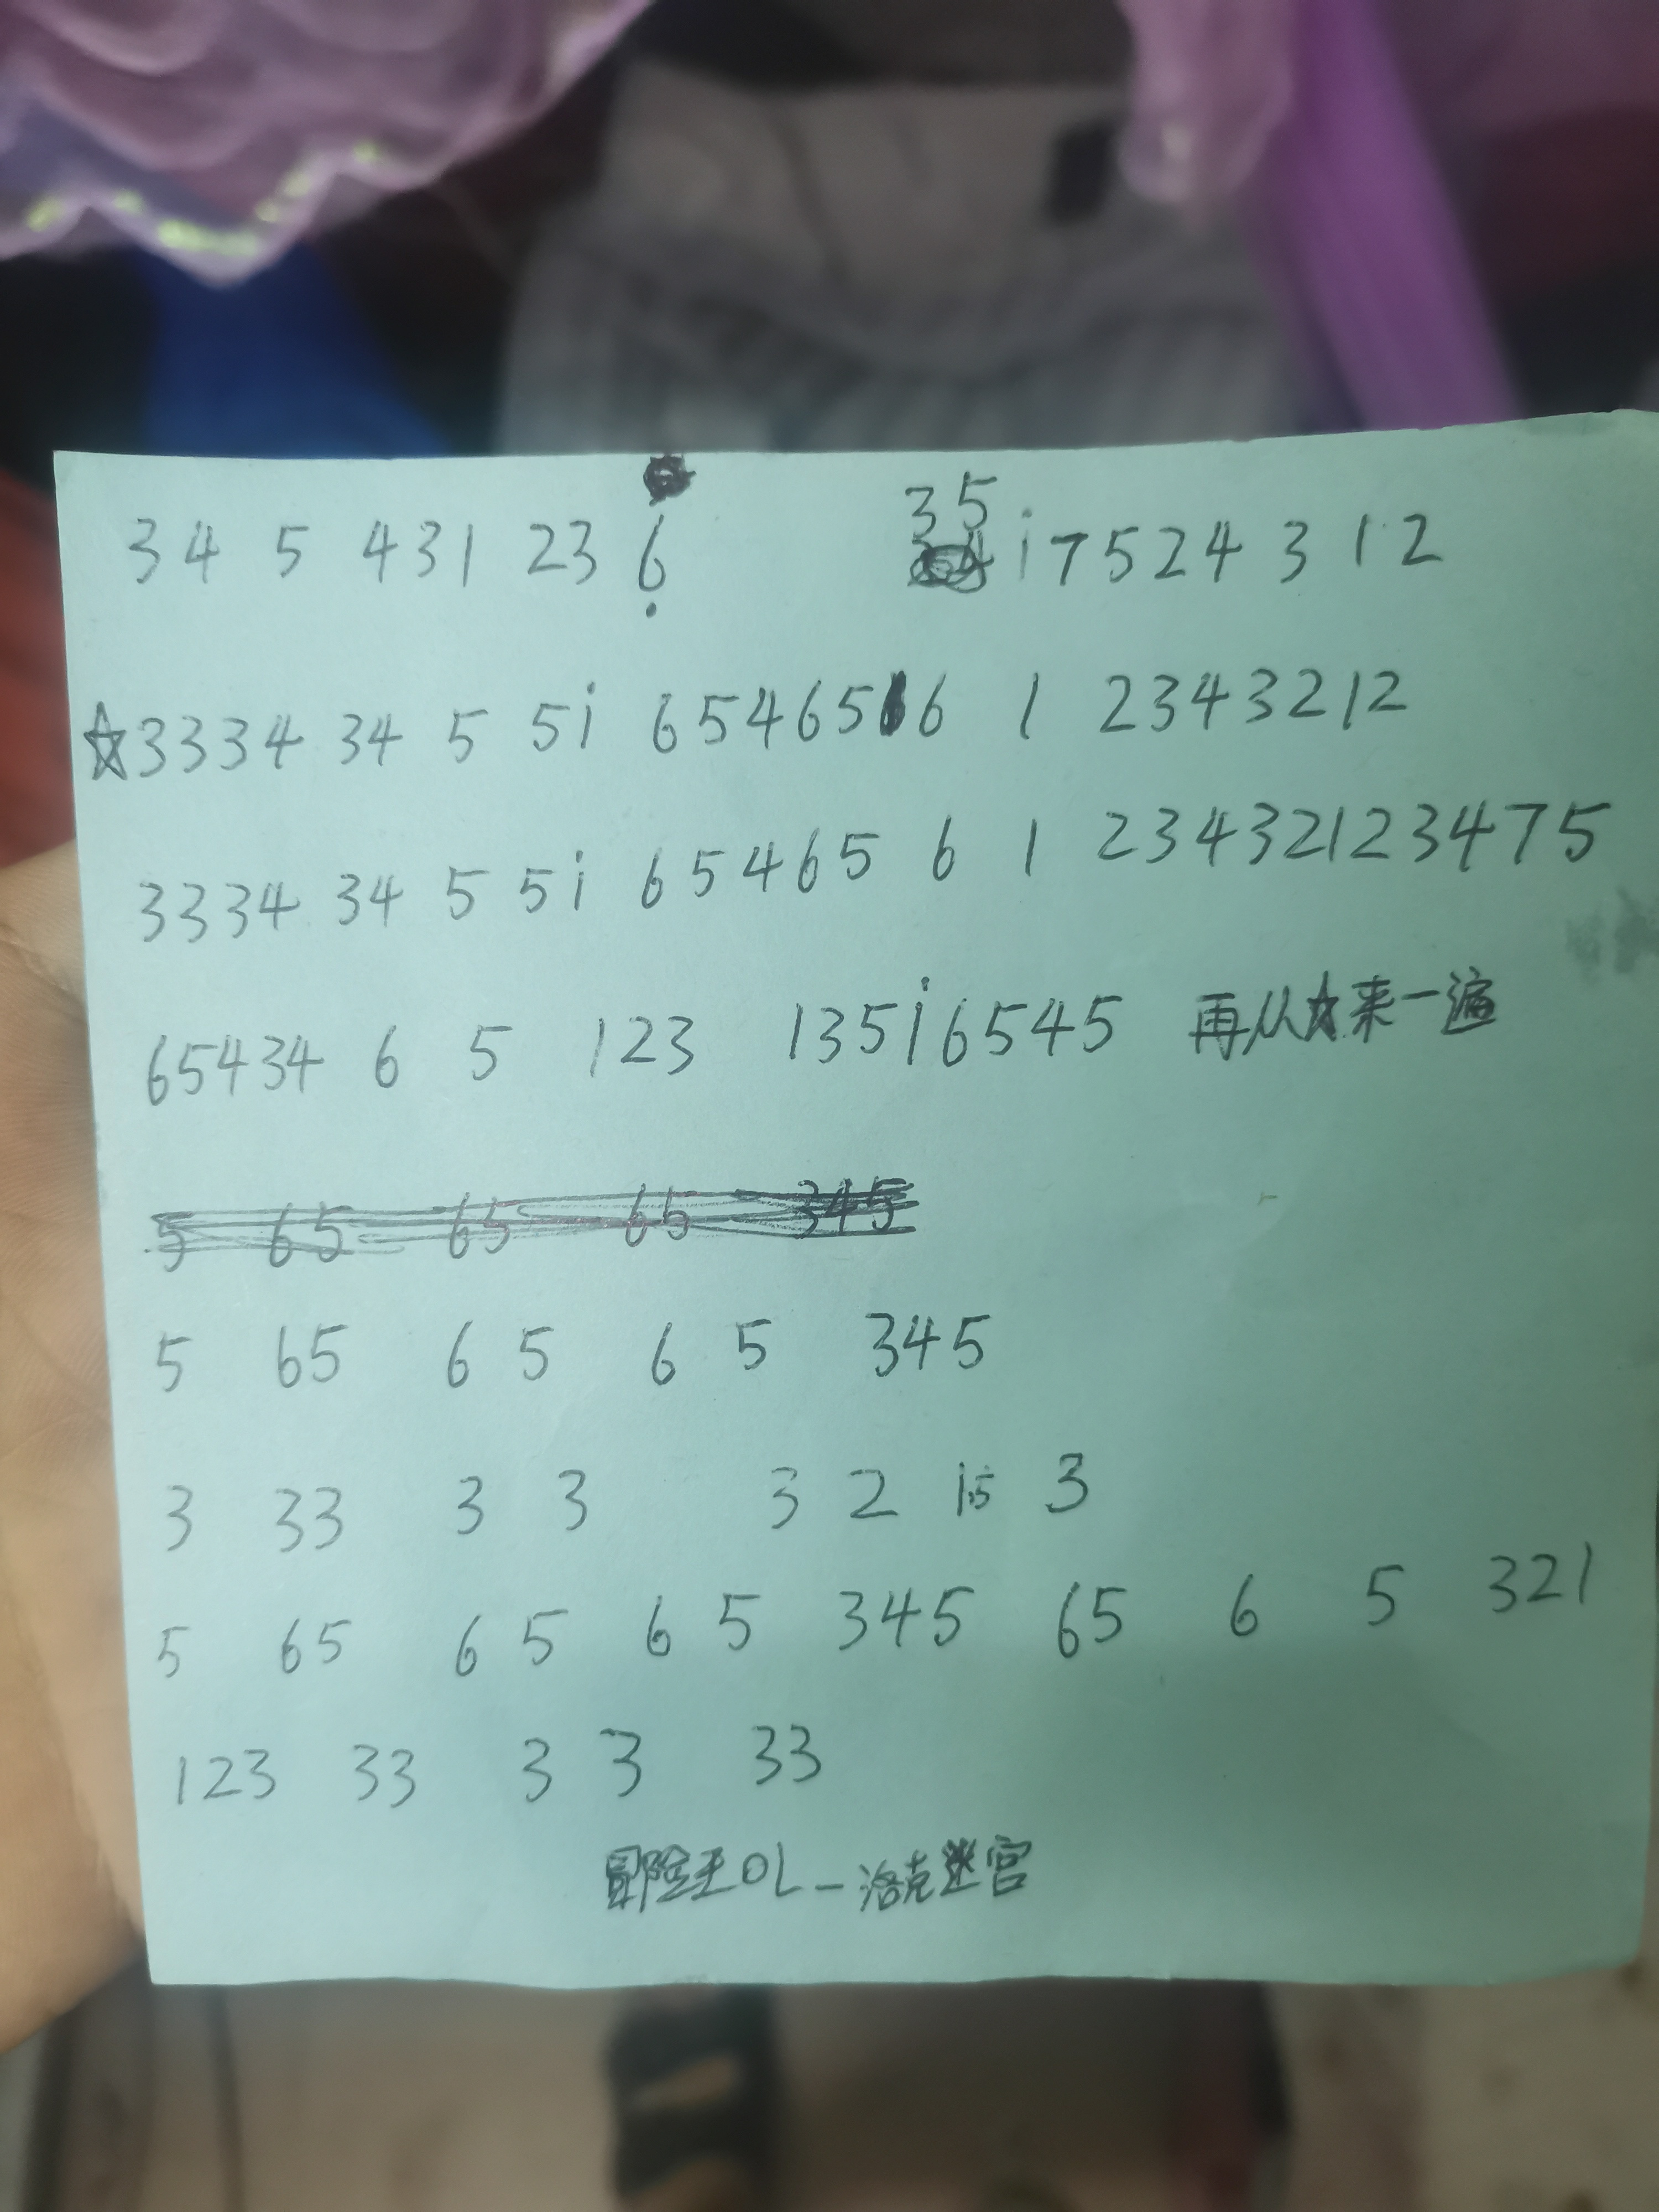 34 5 431 23 6̣ 35 i7524 3 12
☆3334 34 5 5i 654656 1 2343212
3334 34 5 5i 65465 6 1 23432123475
65434 6 5 123 135i6545 再从☆来一遍
5 65 65 65 345
5 65 6 5 6 5 345
3 33 3 3 3 2 1.5 3
5 65 6 5 6 5 345 65 6 5 321
123 33 3 3 33
冒险王OL－洛克迷宫